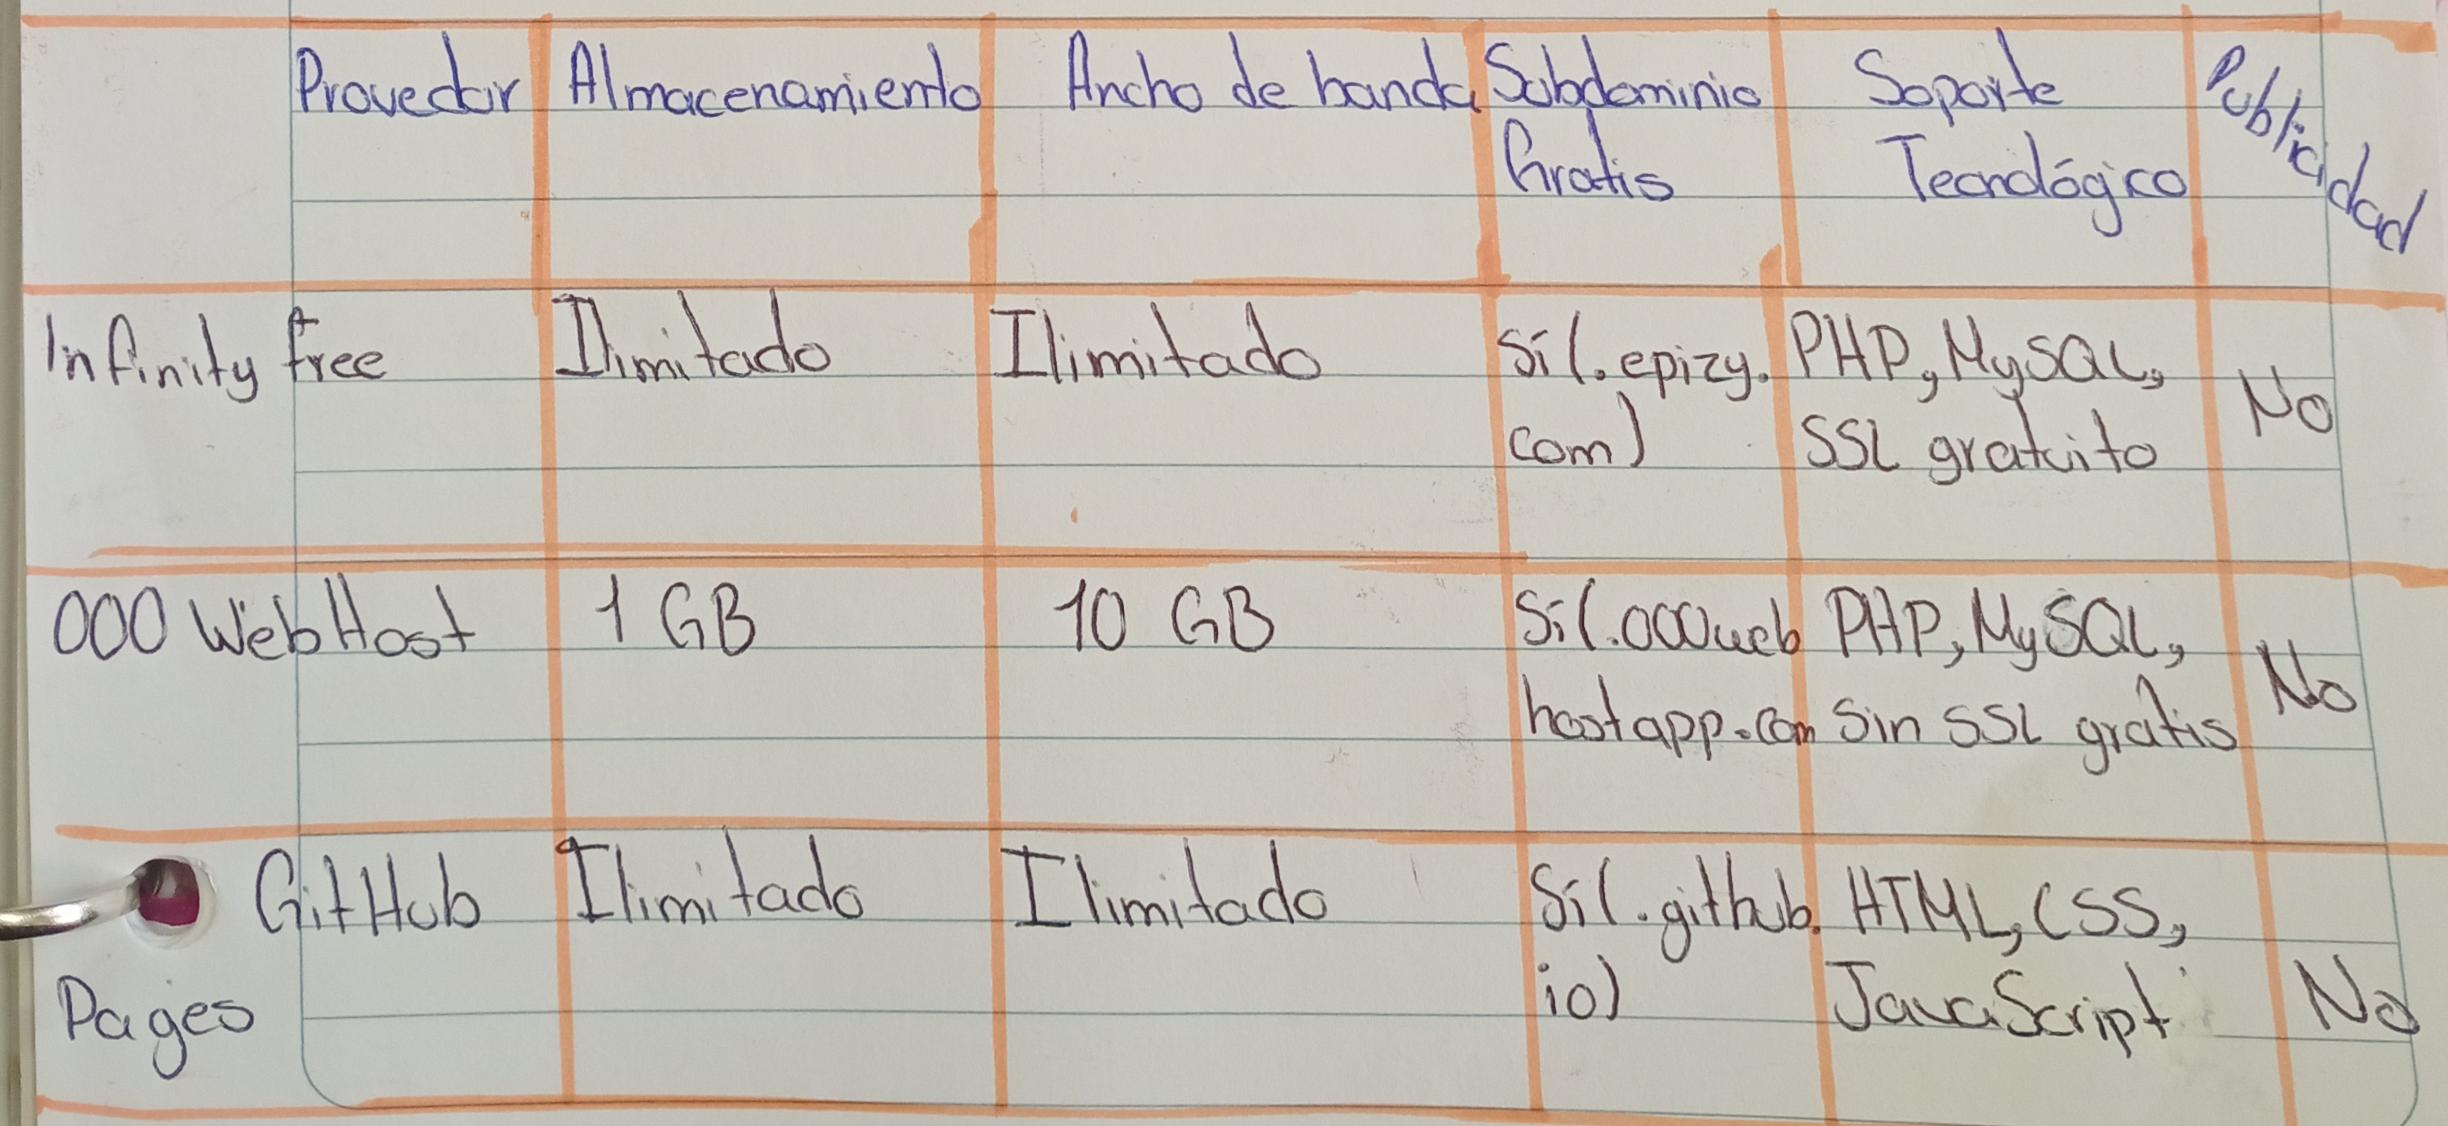 Provedor Almacenamiento Ancho de banda Subdominio Gratis Soporte Tecnológico Publicidad
Infinity free Ilimitado Ilimitado Sí (.epizy. com) PHP, MySQL, SSL gratuito No
000 WebHost 1 GB 10 GB Sí (.000web hostapp.com PHP, MySQL, Sin SSL gratis No
GitHub Pages Ilimitado Ilimitado Sí (.github. io) HTML, CSS, JavaScript No